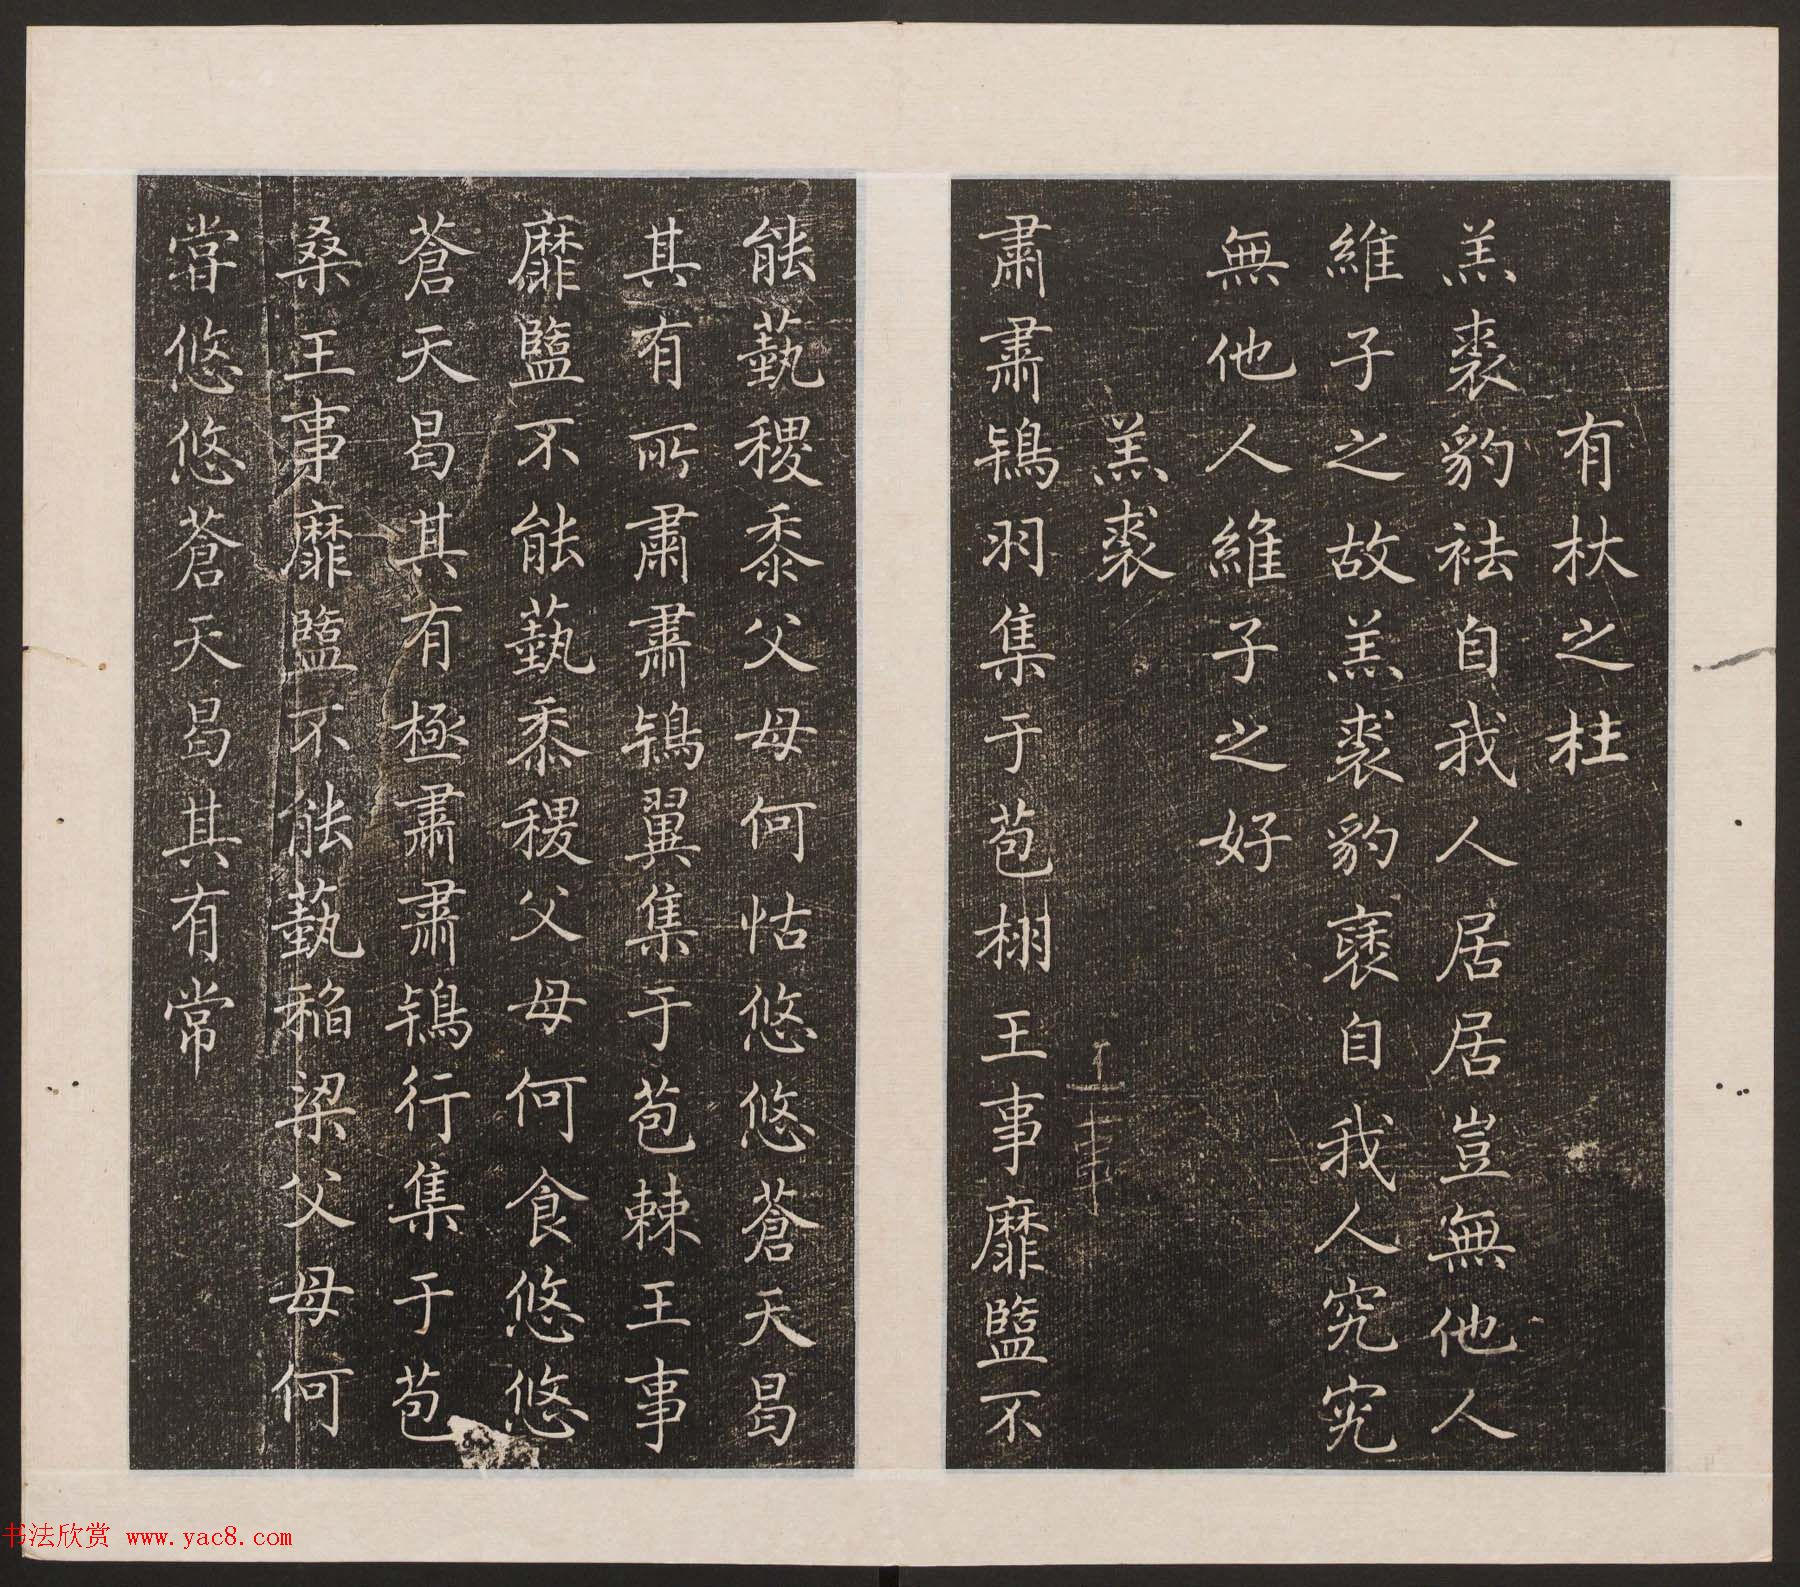 有杕之杜
羔裘豹袪自我人居居豈無他人
維子之故羔裘豹褎自我人究究
無他人維子之好
羔裘
王事
肅肅鴇羽集于苞栩王事靡盬不
能蓺稷黍父母何怙悠悠蒼天曷
其有所肅肅鴇翼集于苞棘王事
靡盬不能蓺黍稷父母何食悠悠
蒼天曷其有極肅肅鴇行集于苞
桑王事靡盬不能蓺稻粱父母何
甞悠悠蒼天曷其有常
书法欣赏 www.yac8.com